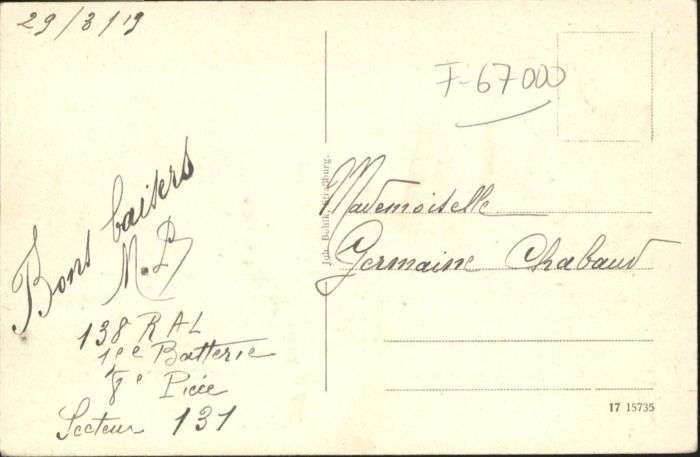 29/3/19
F-67000
Bons baisers
M.P
138 RAL
1ere Batterie
Pièce
Secteur 131
Mademoiselle
Germaine Chabaud
Straßburg.
17 15735